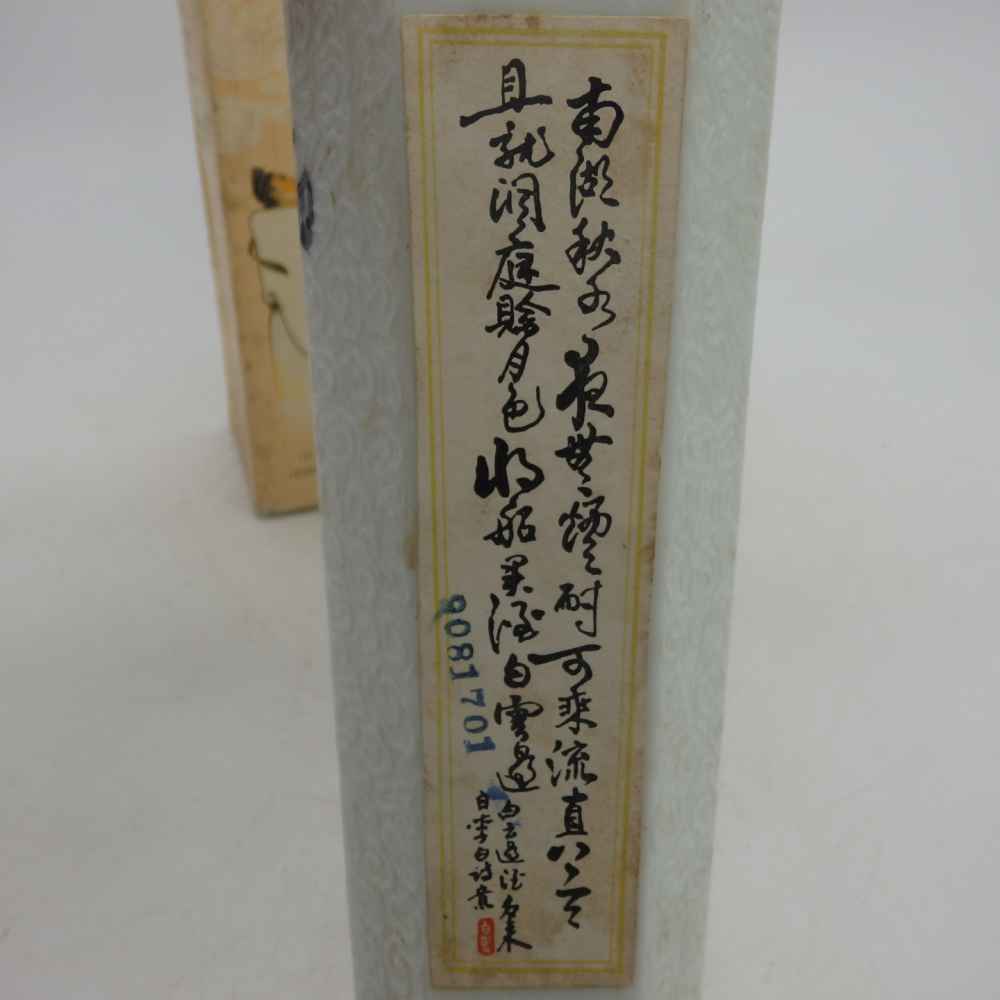 南湖秋水夜無煙耐可乘流直上天
且就洞庭賒月色将船买酒白雲邊
白云邊酒名来
自李白诗意
9081701